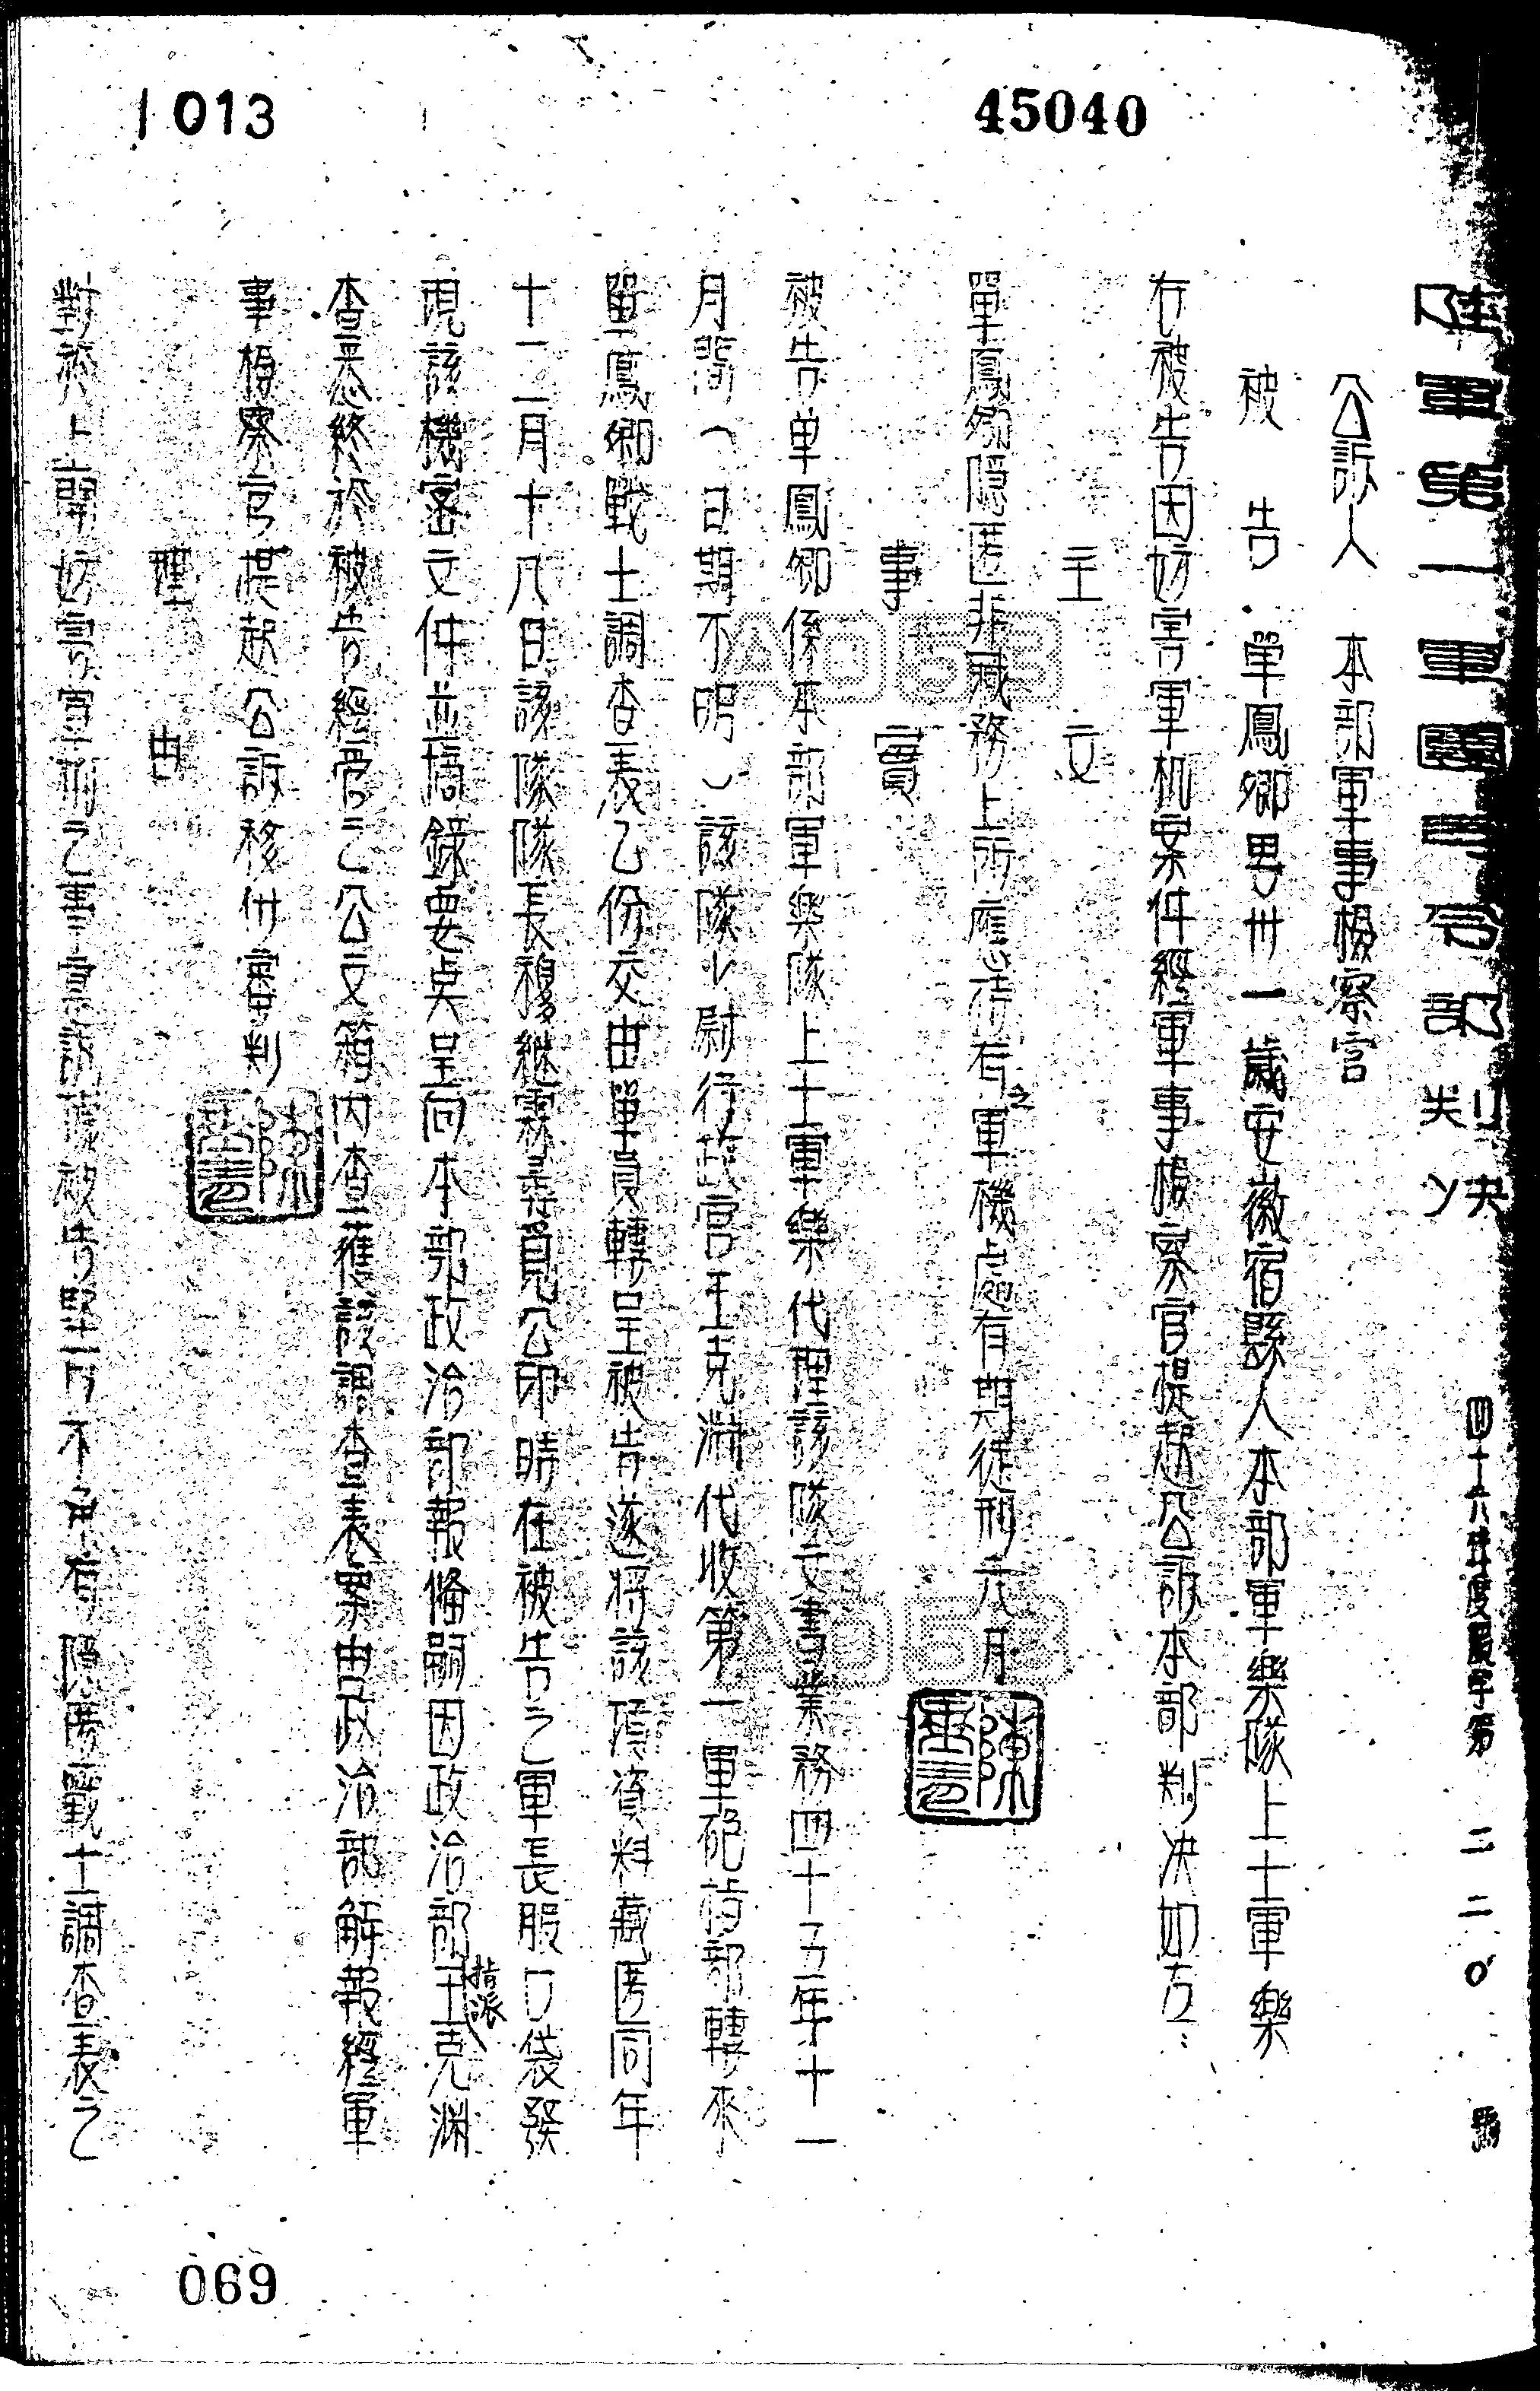 1013
45040
陸軍第一軍團司令部判決
四十六年度晨字第二二0號
公訴人 本部軍事檢察官
被告 單鳳卿男卅一歲安徽宿縣人本部軍樂隊上士軍樂
右被告因妨害軍机案件經軍事檢察官提起公訴本部判決如左:
主文
單鳳卿隱匿非職務上所應持有之軍機處有期徒刑六月
事實
被告单鳳卿係本部軍樂隊上士軍樂代理該隊文書業務四十五年十一
月間(日期不明)該隊少尉行政官王克淵代收第一軍砲指部轉來
單鳳卿戰士調查表乙份交由單員轉呈被告遂將該項資料藏匿同年
十二月十八日該隊隊長穆繼霖尋覓公印時在被告之軍長服口袋發
現該機密文件並摘錄要點呈向本部政治部報備嗣因政治部指派王克淵
查悉終於被告經管之公文箱內查獲該調查表案由政治部解報經軍
事檢察官提起公訴移付審判
理由
對於上開妨害軍機之事實訊據被告堅不承有隱匿戰士調查表之
069